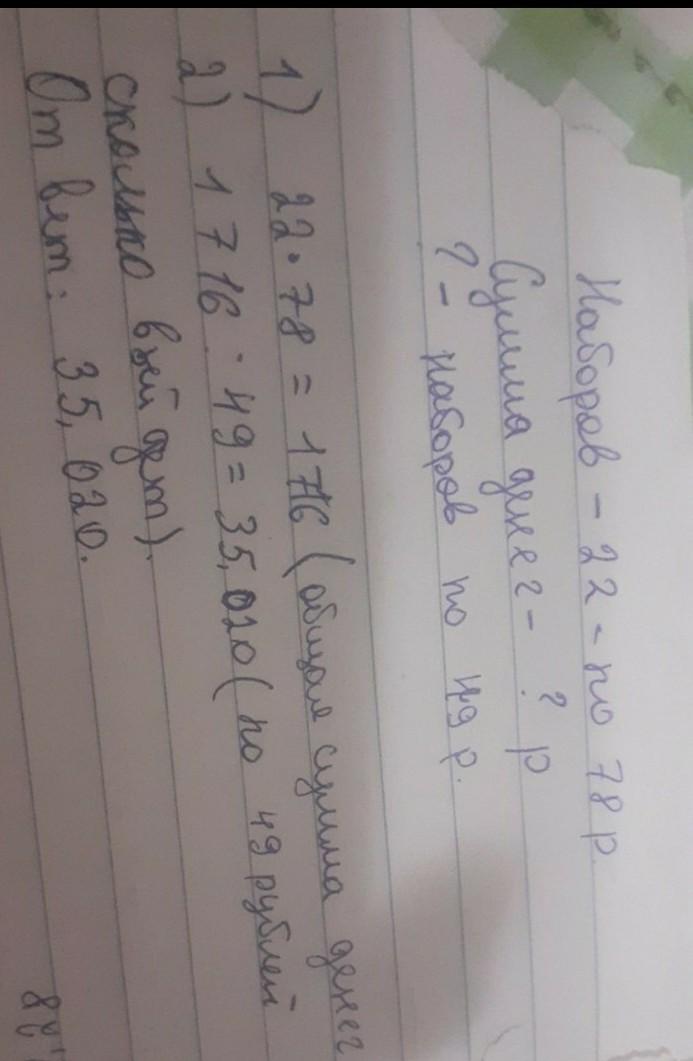 Наборов - 22 - по 78 р.
Сумма денег - ? р
? - наборов по 49 р.
1) 22 · 78 = 1716 (общая сумма денег
2) 1716 : 49 = 35,020 (по 49 рублей
сколько выйдет).
Ответ: 35,020.